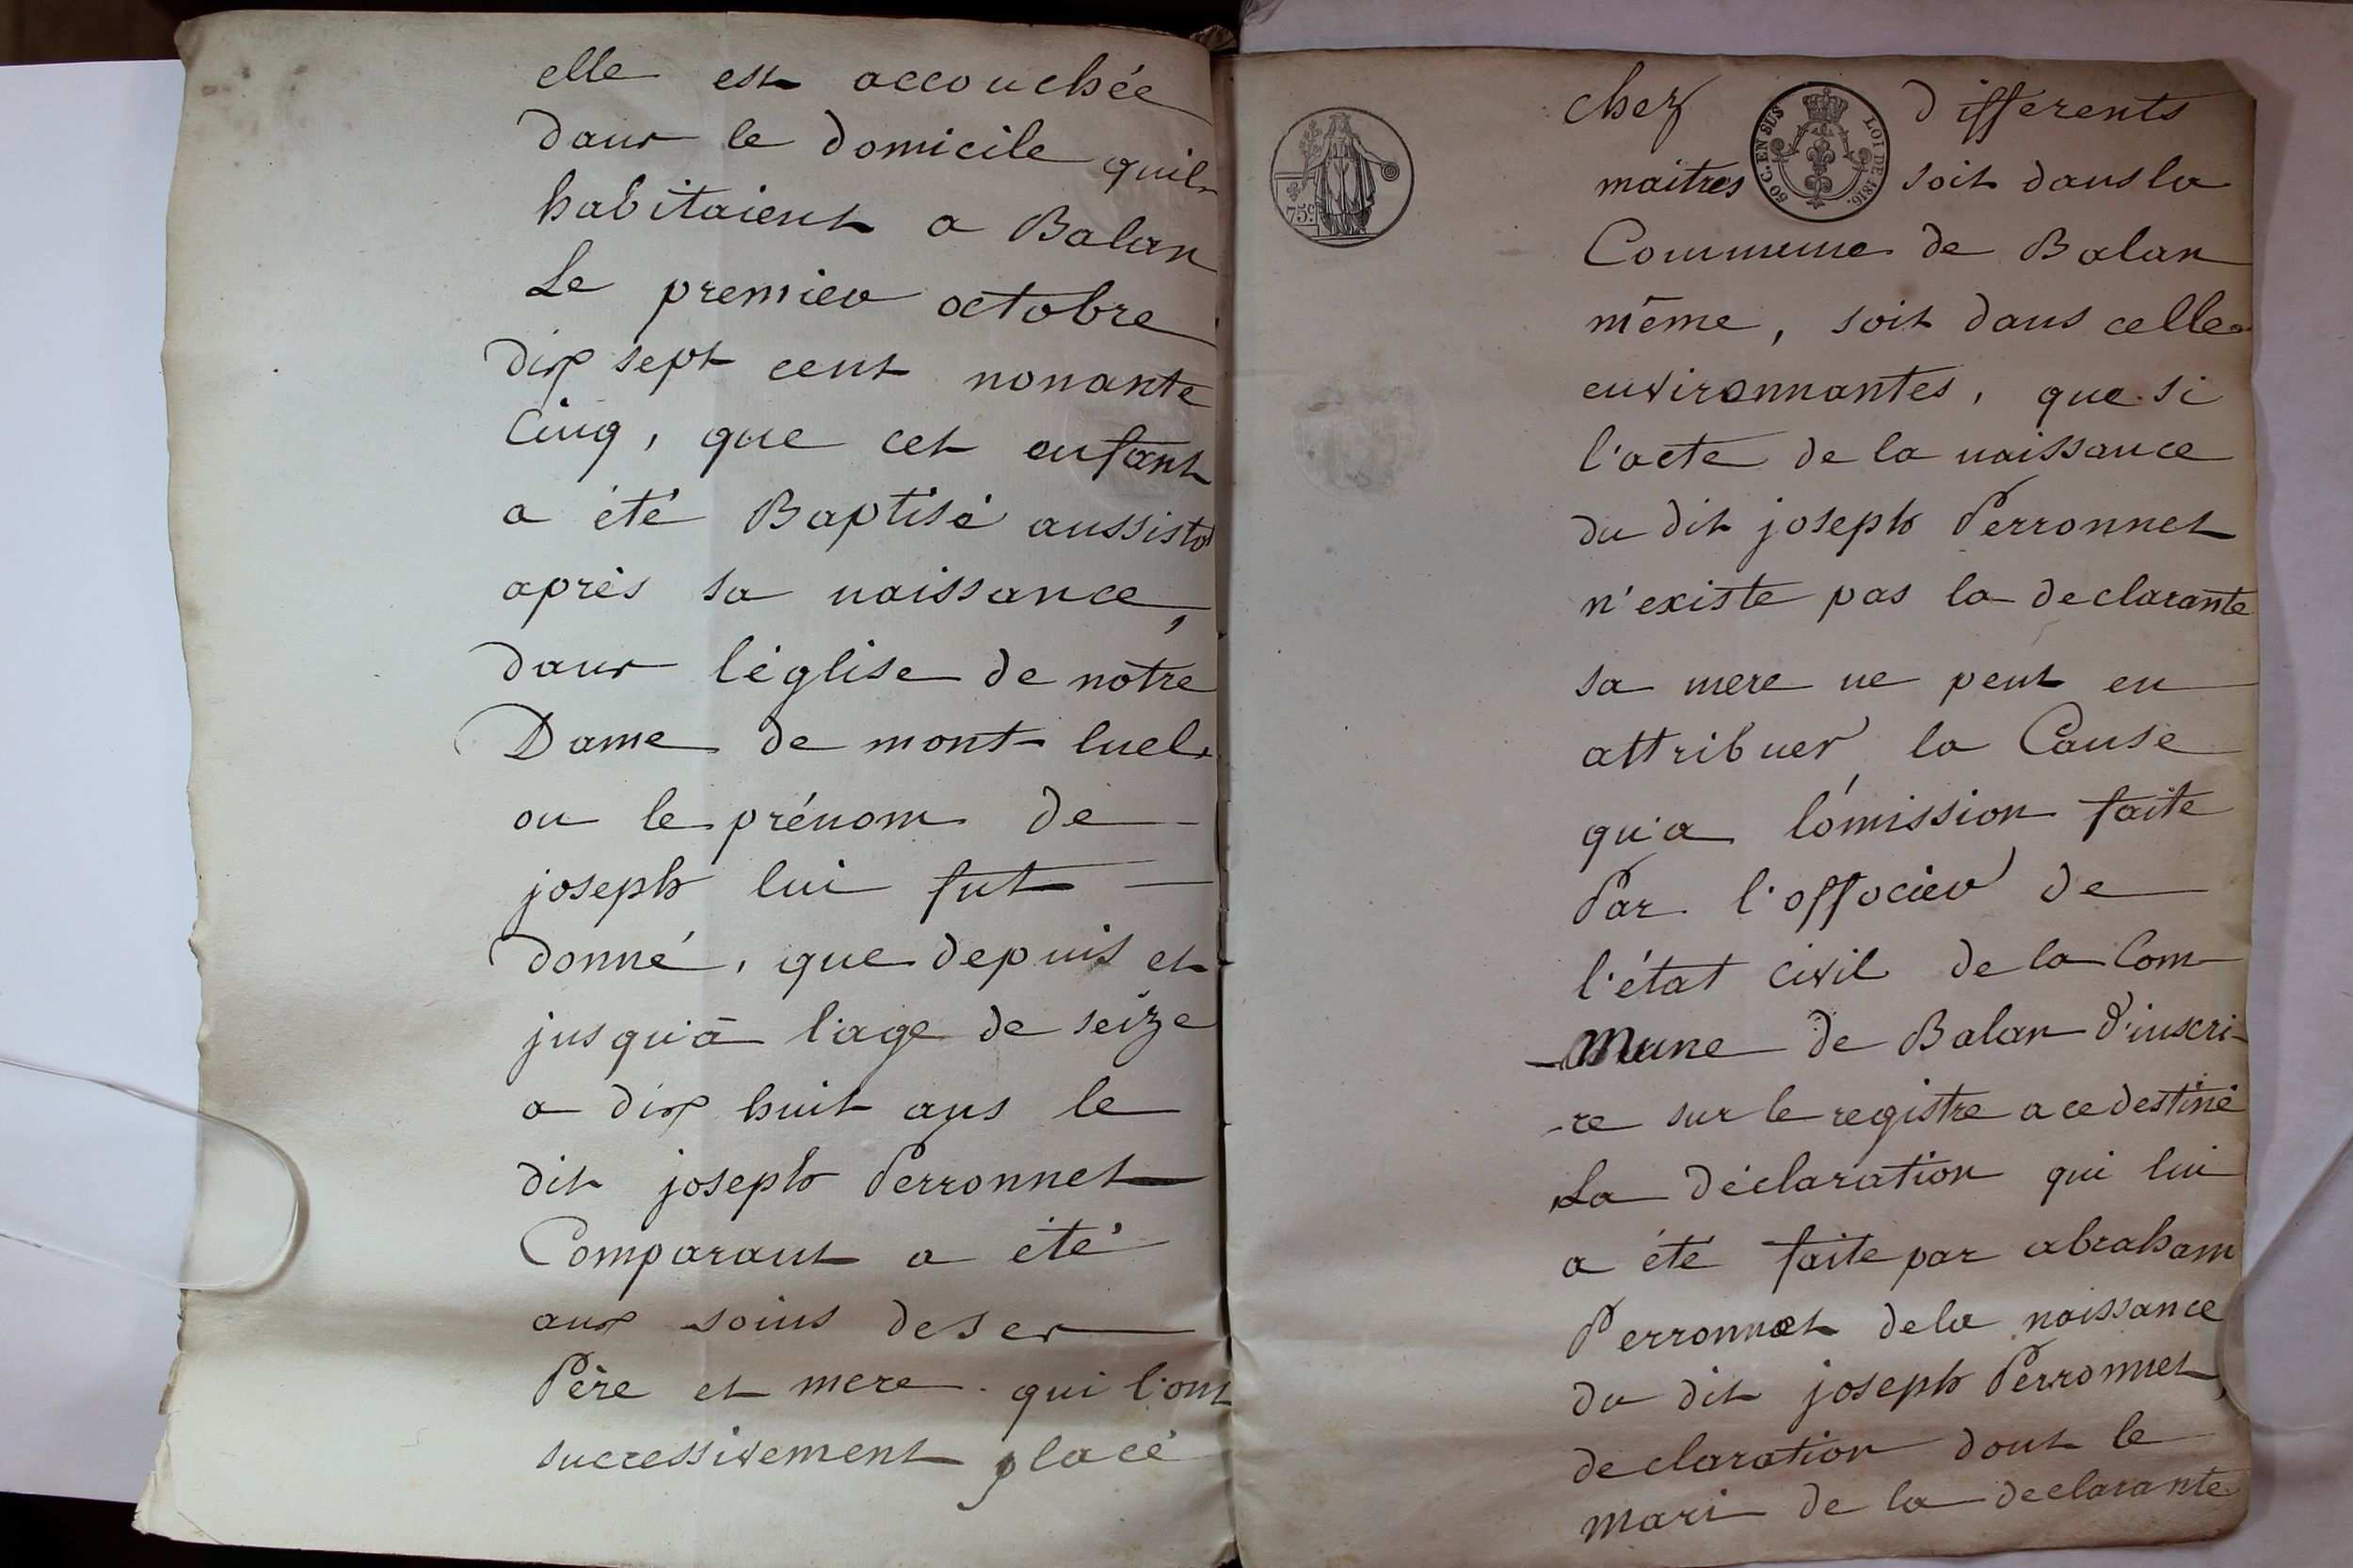 elle est accouchée
dans le domicile quils
habitaient a Balan
Le premier octobre
dix sept cent nonante
Cinq, que cet enfant
a été Baptisé aussistot
après sa naissance,
dans l'église de notre
Dame de mont-luel,
ou le prénom de
joseph lui fut
donné, que depuis et
jusqu'à l'age de seize
a dix huit ans le
dit joseph Perronnet
Comparant a été
aux soins de ses
Père et mere qui l'ont
successivement placé
chez différents
maitres soit dans la
Commune de Balan
même, soit dans celles
environnantes, que si
l'acte de la naissance
du dit joseph Perronnet
n'existe pas la declarante
sa mere ne peut en
attribuer la Cause
qu'a l'omission faite
Par l'officier de
l'état civil de la Com-
-mune de Balan d'inscri-
-re sur le registre a ce destiné
La déclaration qui lui
a été faite par abraham
Perronnet de la naissance
du dit joseph Perronnet,
declaration dont le
mari de la declarante
75c
50 C. EN SUS
LOI DE 1816.